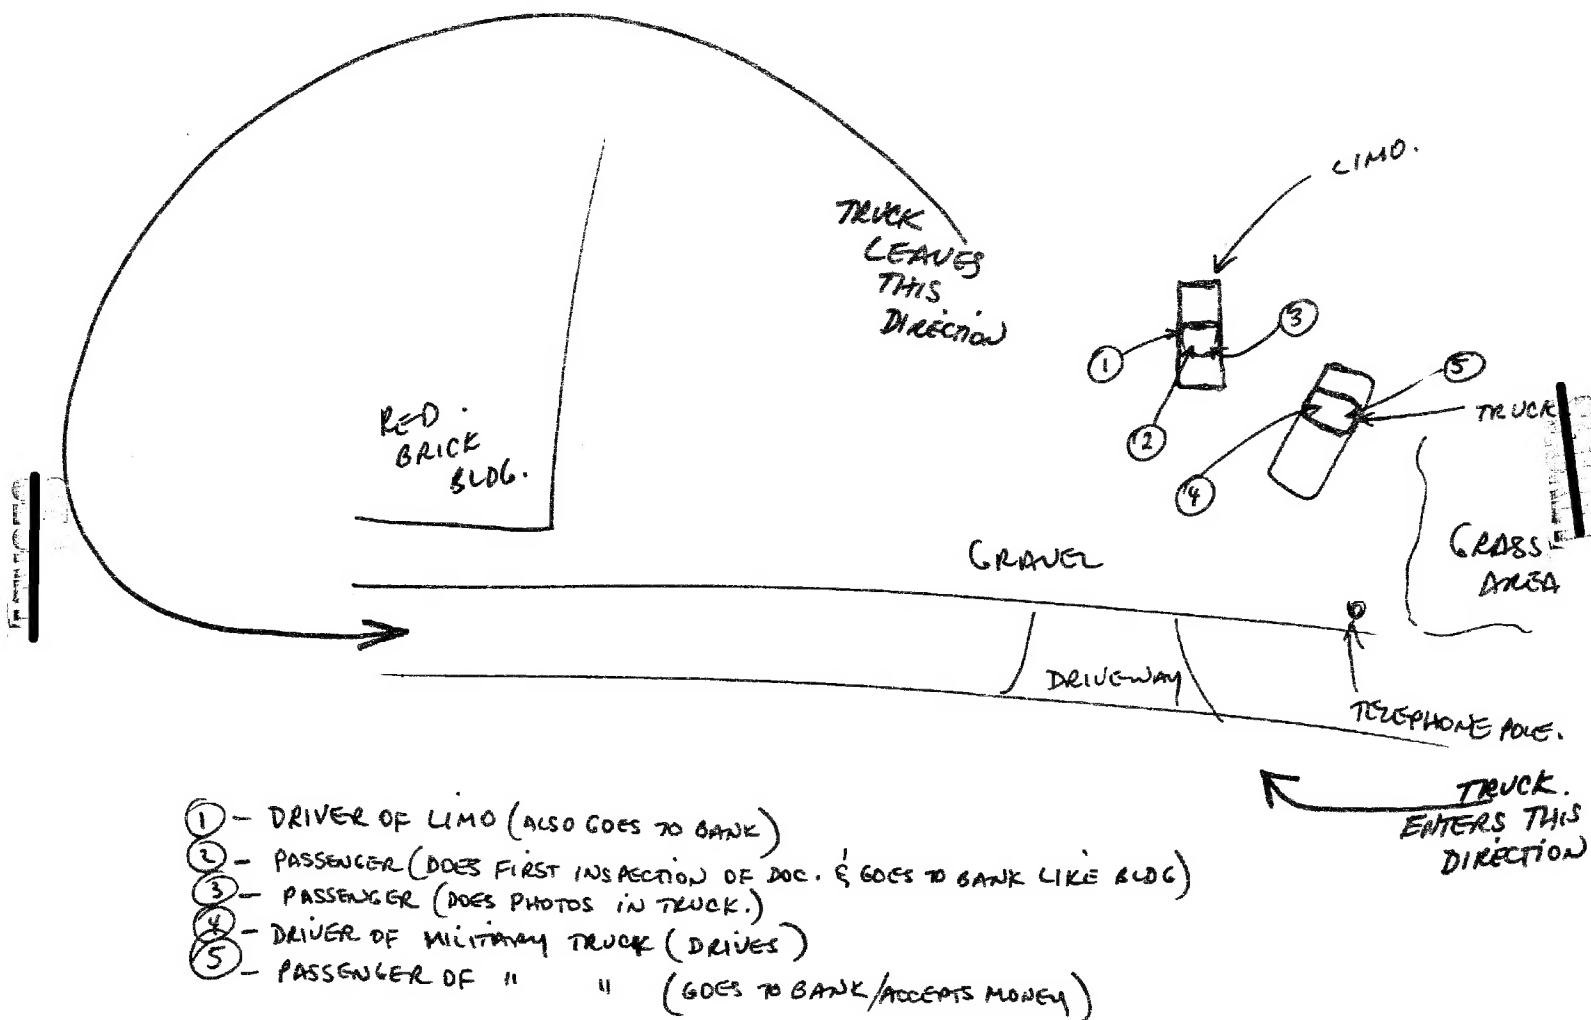 LIMO.
TRUCK
LEAVES
THIS
DIRECTION
3
1
5
TRUCK
2
4
RED
BRICK
BLDG.
GRAVEL
GRASS
AREA
DRIVEWAY
TELEPHONE POLE.
TRUCK.
ENTERS THIS
DIRECTION
1 - DRIVER OF LIMO (ALSO GOES TO BANK)
2 - PASSENGER (DOES FIRST INSPECTION OF DOC. & GOES TO BANK LIKE BLDG)
3 - PASSENGER (DOES PHOTOS IN TRUCK.)
4 - DRIVER OF MILITARY TRUCK (DRIVES)
5 - PASSENGER OF " " (GOES TO BANK/ACCEPTS MONEY)